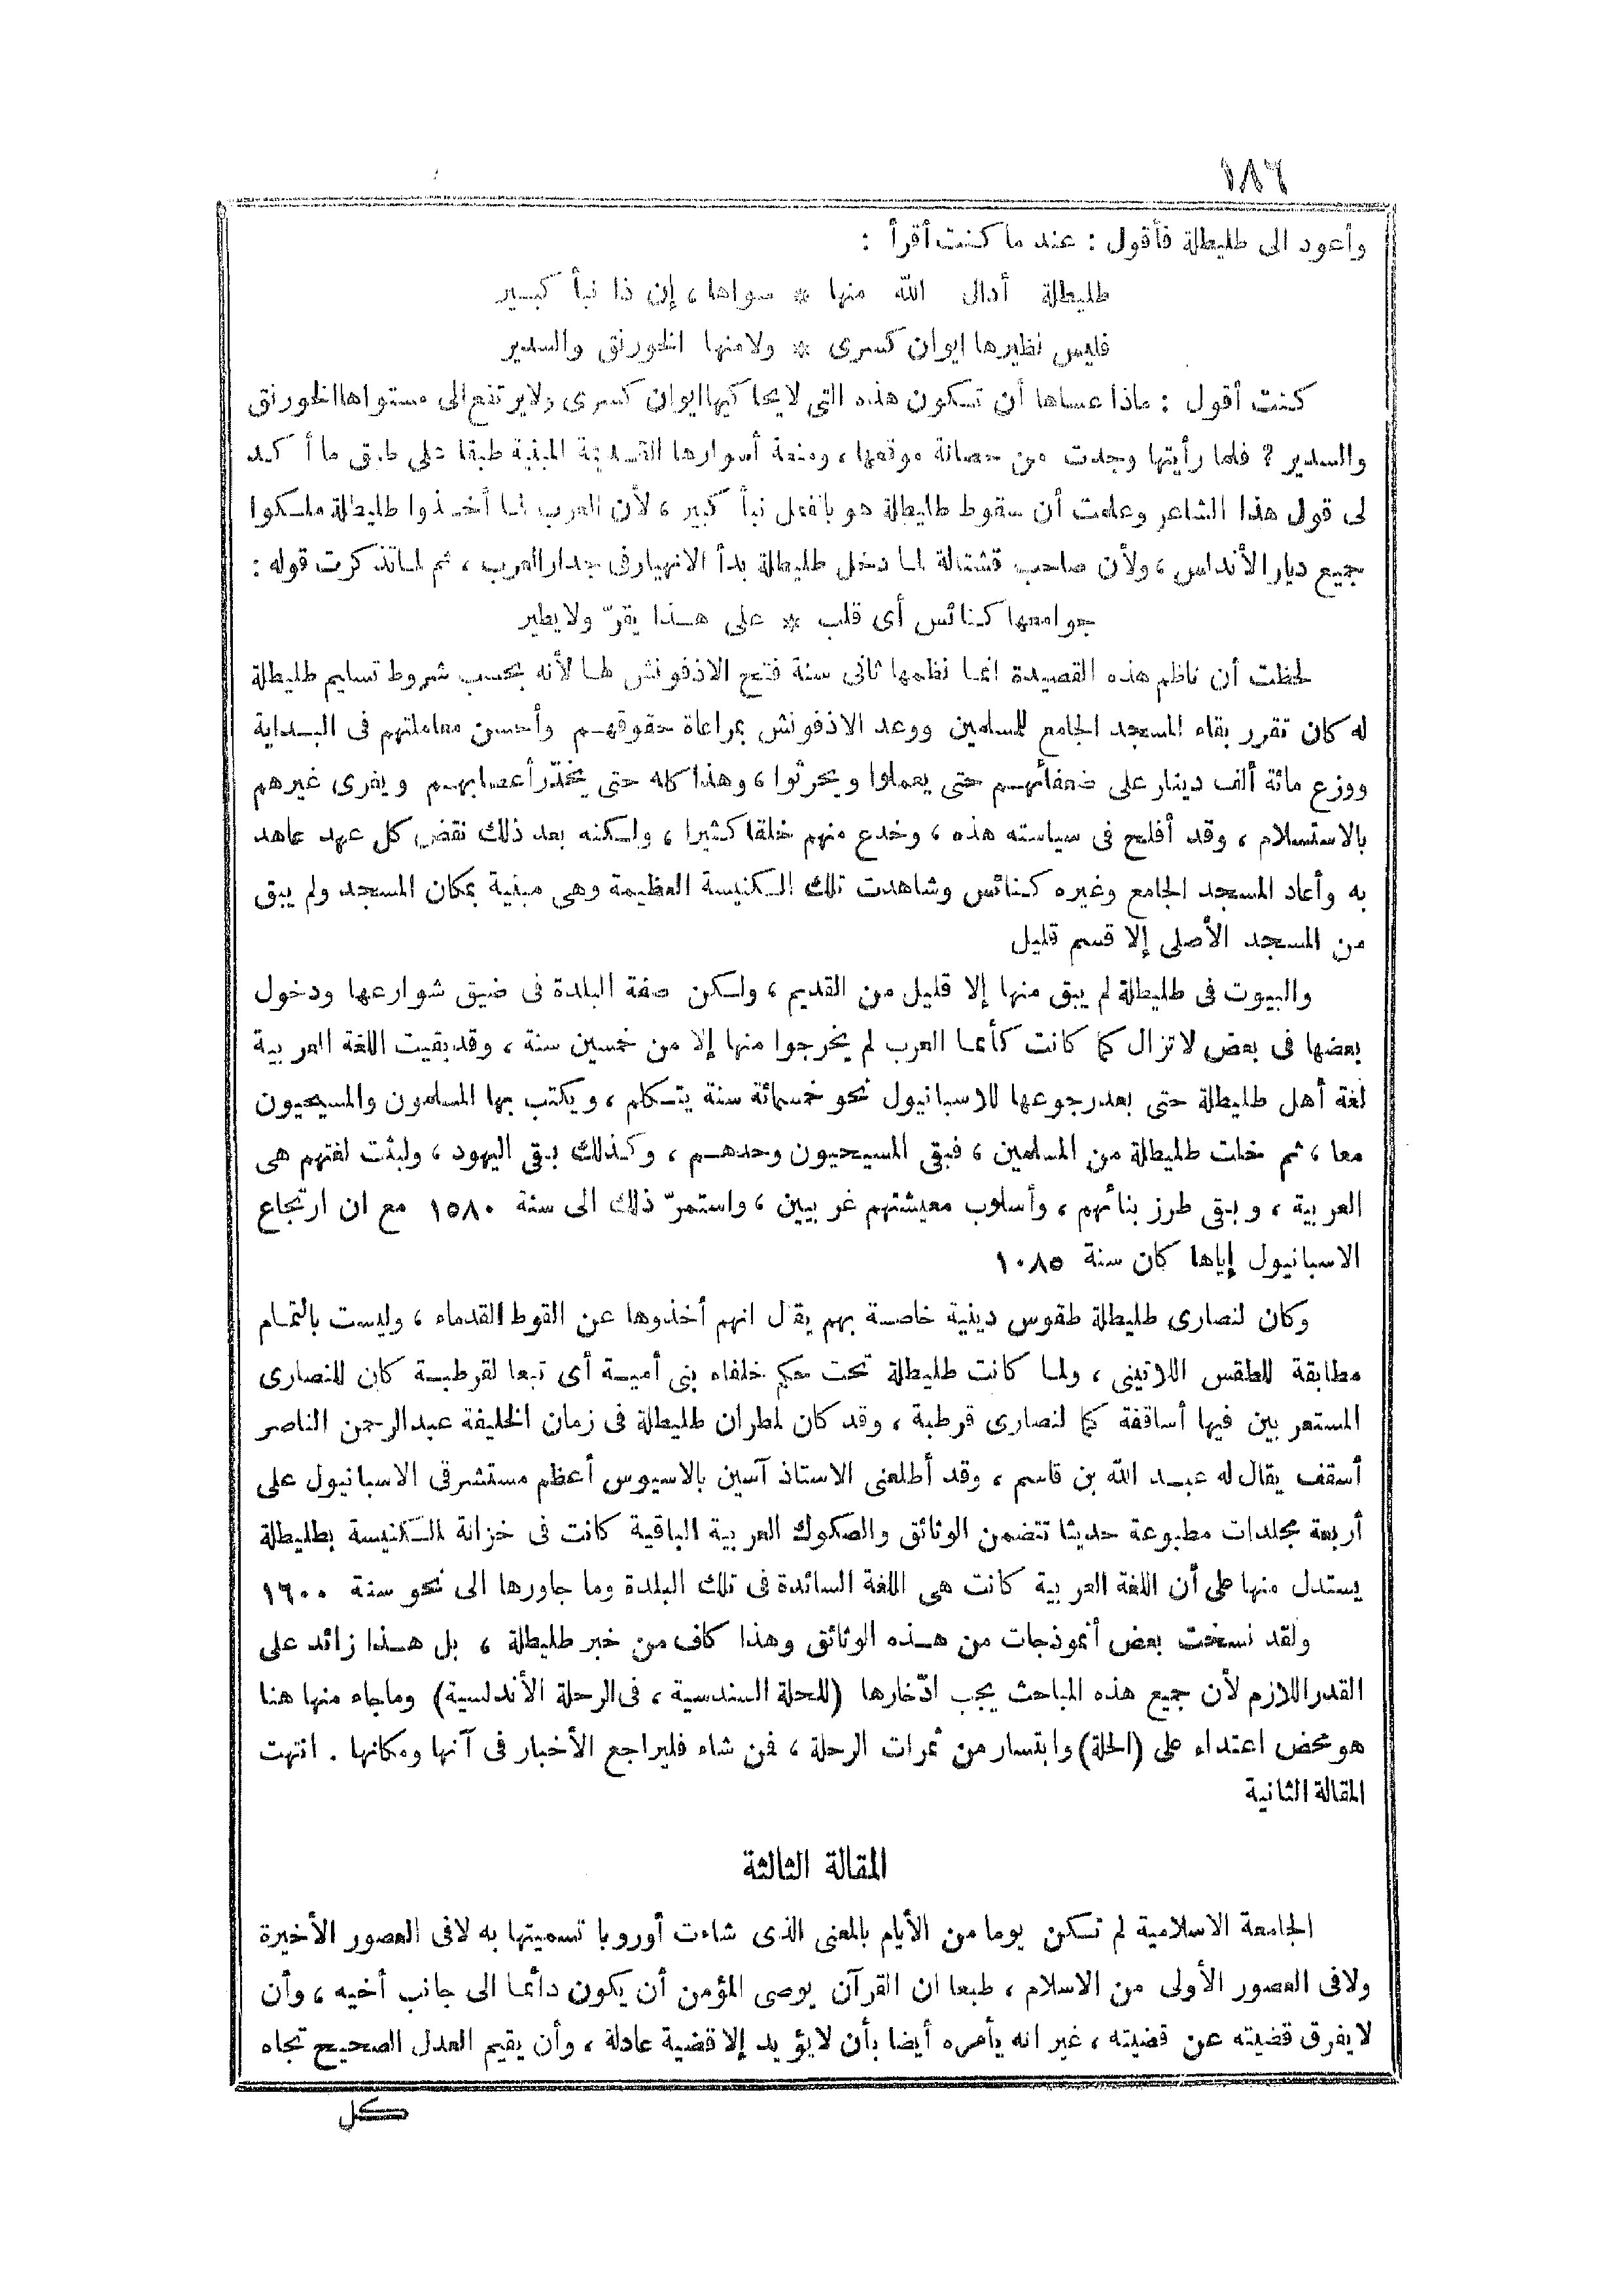 ١٨٦
وأعود الى طليطلة فأقول : عند ما كنت أقرأ :
طليطلة أدال الله منها * سواها ، إن ذا نبأ كبير
فليس نظيرها ايوان كسرى * ولا منها الخورنق والسدير
كنت أقول : ماذا عساها أن تكون هذه التى لا يحا كيها ايوان كسرى ولا يرتفع الى مستواها الخورنق
والسدير ؟ فلما رأيتها وجدت من حصانة موقعها ، ومنعة أسوارها القديمة المبنية طبقا على طبق ما أ كد
لى قول هذا الشاعر وعلمت أن سقوط طليطلة هو بالفعل نبأ كبير ، لأن العرب لما أخذوا طليطلة ملكوا
جميع ديار الأندلس ، ولأن صاحب قشتالة لما دخل طليطلة بدأ الانهيار فى جدار العرب ، ثم لما تذ كرت قوله :
جوامعها كنائس أى قلب * على هذا يقرّ ولا يطير
لحظت أن ناظم هذه القصيدة انما نظمها ثانى سنة فتح الاذفونش لها لأنه بحسب شروط تسليم طليطلة
له كان تقرر بقاء المسجد الجامع للمسلمين ووعد الاذفونش بمراعاة حقوقهم وأحسن معاملتهم فى البداية
ووزع مائة ألف دينار على ضعفائهم حتى يعملوا ويحرثوا ، وهذا كله حتى يخدّر أعصابهم ويغرى غيرهم
بالاستسلام ، وقد أفلح فى سياسته هذه ، وخدع منهم خلقا كثيرا ، ولكنه بعد ذلك نقض كل عهد عاهد
به وأعاد المسجد الجامع وغيره كنائس وشاهدت تلك الكنيسة العظيمة وهى مبنية بمكان المسجد ولم يبق
من المسجد الأصلى إلا قسم قليل
والبيوت فى طليطلة لم يبق منها إلا قليل من القديم ، ولكن صفة البلدة فى ضيق شوارعها ودخول
بعضها فى بعض لا تزال كما كانت كأنما العرب لم يخرجوا منها إلا من خمسين سنة ، وقد بقيت اللغة العربية
لغة أهل طليطلة حتى بعد رجوعها للاسبانيول نحو خمسمائة سنة يتكلم ، ويكتب بها المسلمون والمسيحيون
معا ، ثم خلت طليطلة من المسلمين ، فبقى المسيحيون وحدهم ، وكذلك بقى اليهود ، ولبثت لغتهم هى
العربية ، وبقى طرز بنائهم ، وأسلوب معيشتهم غربيين ، واستمرّ ذلك الى سنة ١٥٨٠ مع ان ارتجاع
الاسبانيول إياها كان سنة ١٠٨٥
وكان لنصارى طليطلة طقوس دينية خاصة بهم يقال انهم أخذوها عن القوط القدماء ، وليست بالتمام
مطابقة للطقس اللاتينى ، ولما كانت طليطلة تحت حكم خلفاء بنى أمية أى تبعا لقرطبة كان للنصارى
المستعربين فيها أساقفة كما لنصارى قرطبة ، وقد كان لمطران طليطلة فى زمان الخليفة عبد الرحمن الناصر
أسقف يقال له عبد الله بن قاسم ، وقد أطلعنى الاستاذ آسين بالاسيوس أعظم مستشرقى الاسبانيول على
أربعة مجلدات مطبوعة حديثا تتضمن الوثائق والصكوك العربية الباقية كانت فى خزانة الكنيسة بطليطلة
يستدل منها على أن اللغة العربية كانت هى اللغة السائدة فى تلك البلدة وما جاورها الى نحو سنة ١٦٠٠
ولقد نسخت بعض أنموذجات من هذه الوثائق وهذا كاف من خبر طليطلة ، بل هذا زائد على
القدر اللازم لأن جميع هذه المباحث يجب ادّخارها (للحلة السندسية ، فى الرحلة الأندلسية) وما جاء منها هنا
هو محض اعتداء على (الحلة) وابتسار من ثمرات الرحلة ، فمن شاء فليراجع الأخبار فى آنها ومكانها . انتهت
المقالة الثانية
المقالة الثالثة
الجامعة الاسلامية لم تكن يوما من الأيام بالمعنى الذى شاءت أوروبا تسميتها به لا فى العصور الأخيرة
ولا فى العصور الأولى من الاسلام ، طبعا ان القرآن يوصى المؤمن أن يكون دائما الى جانب أخيه ، وأن
لا يفرق قضيته عن قضيته ، غير انه يأمره أيضا بأن لا يؤيد إلا قضية عادلة ، وأن يقيم العدل الصحيح تجاه
كل